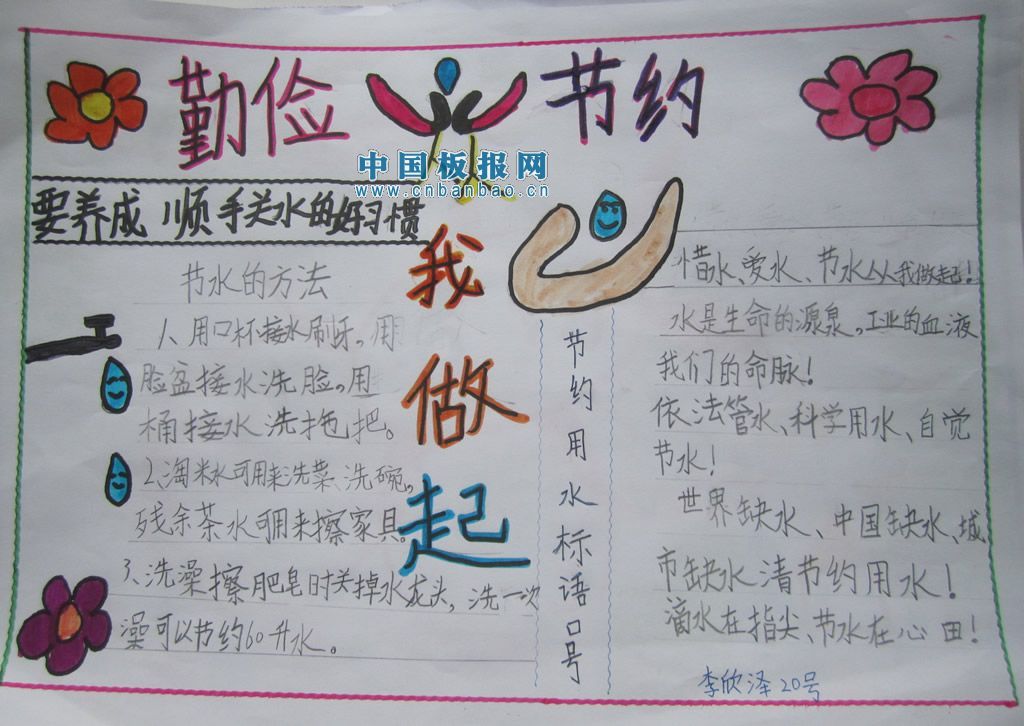 勤俭 节约
中国板报网
www.cnbanbao.cn
要养成 顺手关水的好习惯
我做起
节水的方法
1、用口杯接水刷牙,用
脸盆接水洗脸,用
桶接水洗拖把。
2、淘米水可用来洗菜、洗碗,
残余茶水可用来擦家具。
3、洗澡擦肥皂时关掉水龙头,洗一次
澡可以节约60升水。
节约用水标语口号
惜水、爱水、节水从我做起!
水是生命的源泉,工业的血液
我们的命脉!
依法管水、科学用水、自觉
节水!
世界缺水、中国缺水、城
市缺水清节约用水!
滴水在指尖、节水在心田!
李欣泽20号